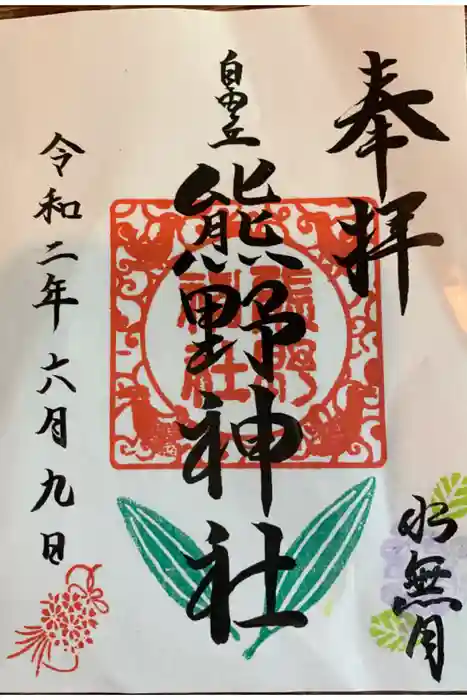 奉拝
自由丘
熊野神社
水無月
令和二年六月九日